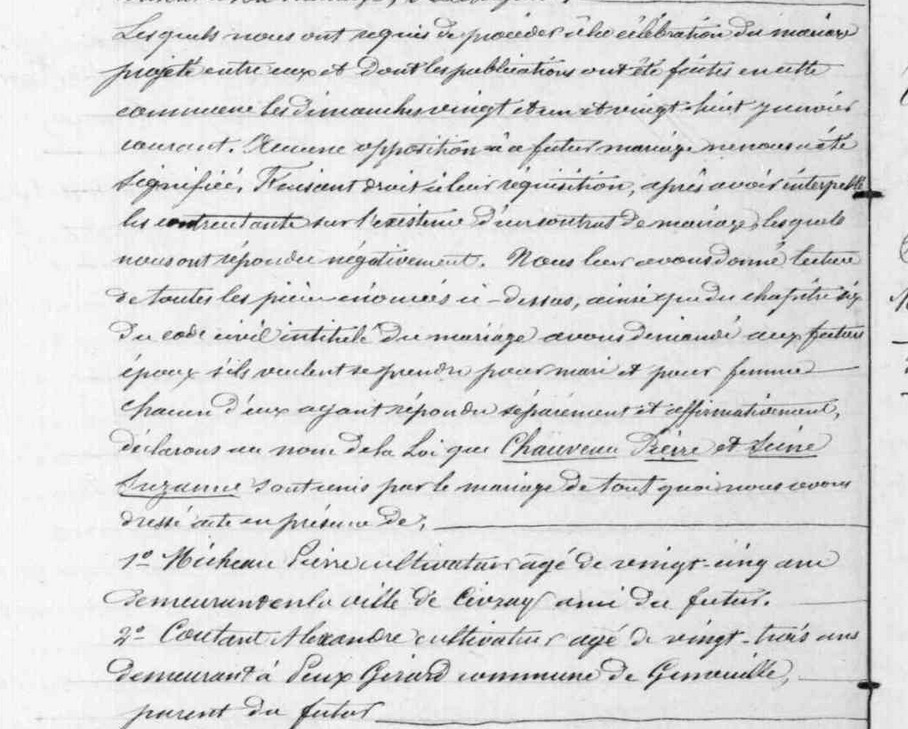 Lesquels nous ont requis de procéder à la célébration du mariage
projeté entre eux et dont les publications ont été faites en cette
commune les dimanches vingt et un et vingt-huit janvier
courant. Aucune opposition à ce futur mariage ne nous a été
signifiée, Faisant droit à leur réquisition, après avoir interpellé
les contractants sur l'existence d'un contrat de mariage, lesquels
nous ont répondu négativement. Nous leur avons donné lecture
de toutes les pièces énoncées ci-dessus, ainsi que du chapitre six
du code civil intitulé du mariage avons demandé aux futurs
époux s'ils veulent se prendre pour mari et pour femme
chacun d'eux ayant répondu séparément et affirmativement,
déclarons au nom de la Loi que Chauveau Pierre et
Suzanne sont unis par le mariage de tout quoi nous avons
dressé acte en présence de,
1º Micheau Pierre cultivateur agé de vingt-cinq ans
demeurant en la ville de Civray ami du futur.
2º Coutant Alexandre cultivateur agé de vingt-trois ans
demeurant à Peux Girard commune de Genouillé,
parent du futur